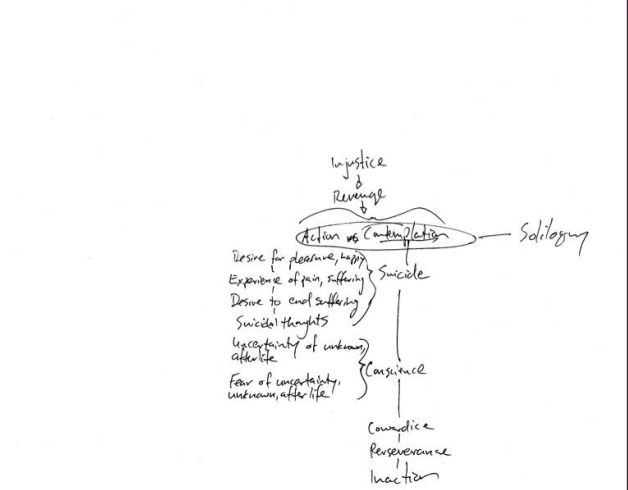 Injustice
Revenge
Action vs Contemplation
Soliloquy
Desire for pleasure, happy
Experience of pain, suffering
Suicide
Desire to end suffering
Suicidal thoughts
Uncertainty of unknown,
afterlife
Conscience
Fear of uncertainty,
unknown, afterlife
Cowardice
Perseverance
Inaction